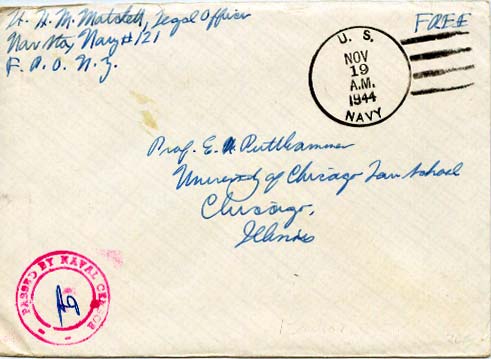 H. M. Matchett, Legal Officer
Nav Sta, Navy #121
F. P. O. N.Y.
FREE
U. S.
NOV
19
A.M.
1944
NAVY
Prof. E. W. Puttkammer
University of Chicago Law School
Chicago,
Illinois
PASSED BY NAVAL CENSOR